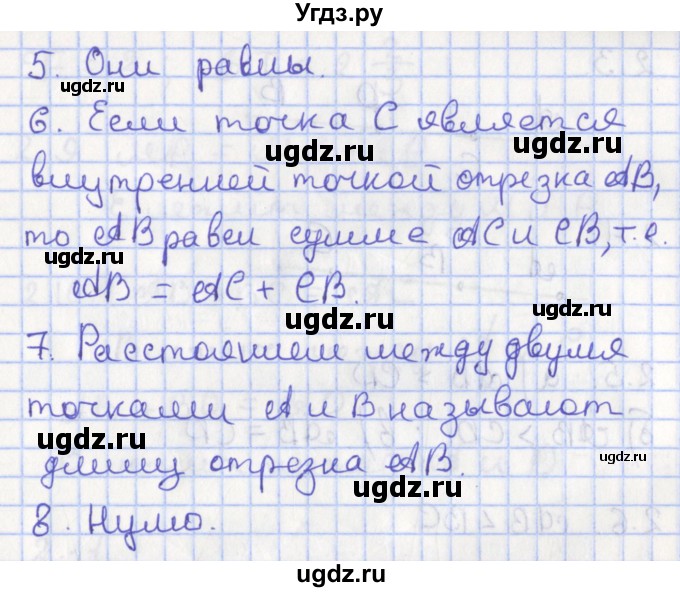 Угдз.ру
5. Они равны.
ugdz.ru
6. Если точка C является
ugdz.ru ugdz.ru
внутренней точкой отрезка AB,
то AB равен сумме AC и CB, т.е.
ugdz.ru
AB = AC + CB.
ugdz.ru ugdz.ru
7. Расстоянием между двумя
точками A и B называют
ugdz.ru ugdz.ru
длину отрезка AB.
ugdz.ru
8. Нулю.
ugdz.ru
ugdz.ru